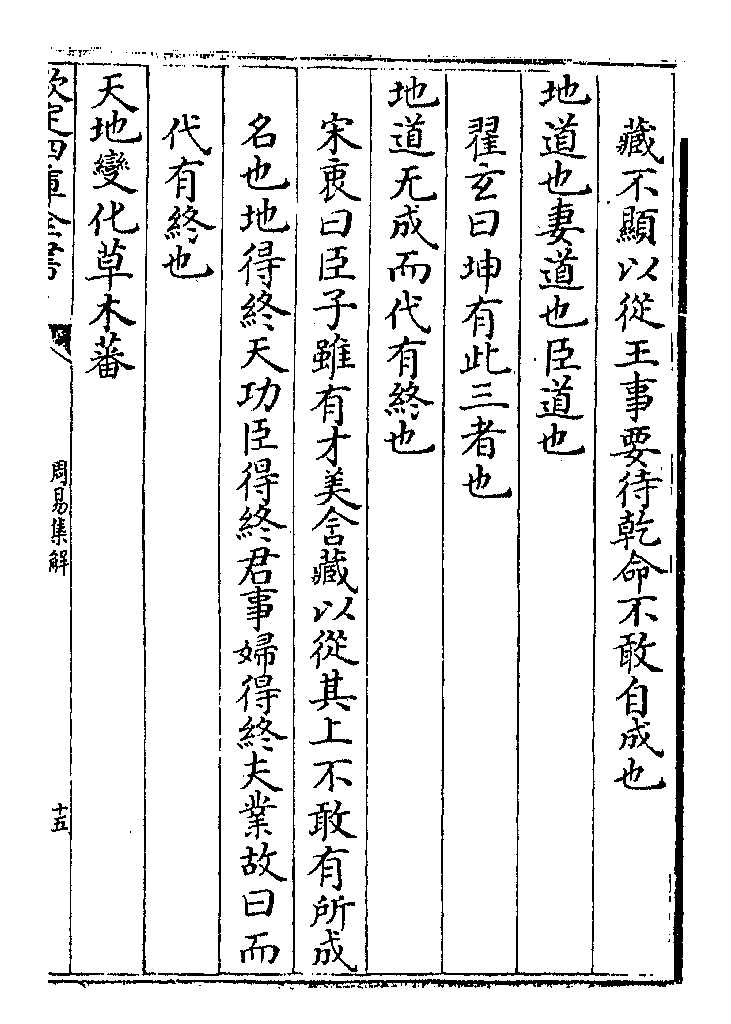 藏不顯以從王事要待乾命不敢自成也
地道也妻道也臣道也
翟玄曰坤有此三者也
地道无成而代有終也
宋衷曰臣子雖有才美含藏以從其上不敢有所成
名也地得終天功臣得終君事婦得終夫業故曰而
代有終也
天地變化草木蕃
欽定四庫全書
周易集解
十五